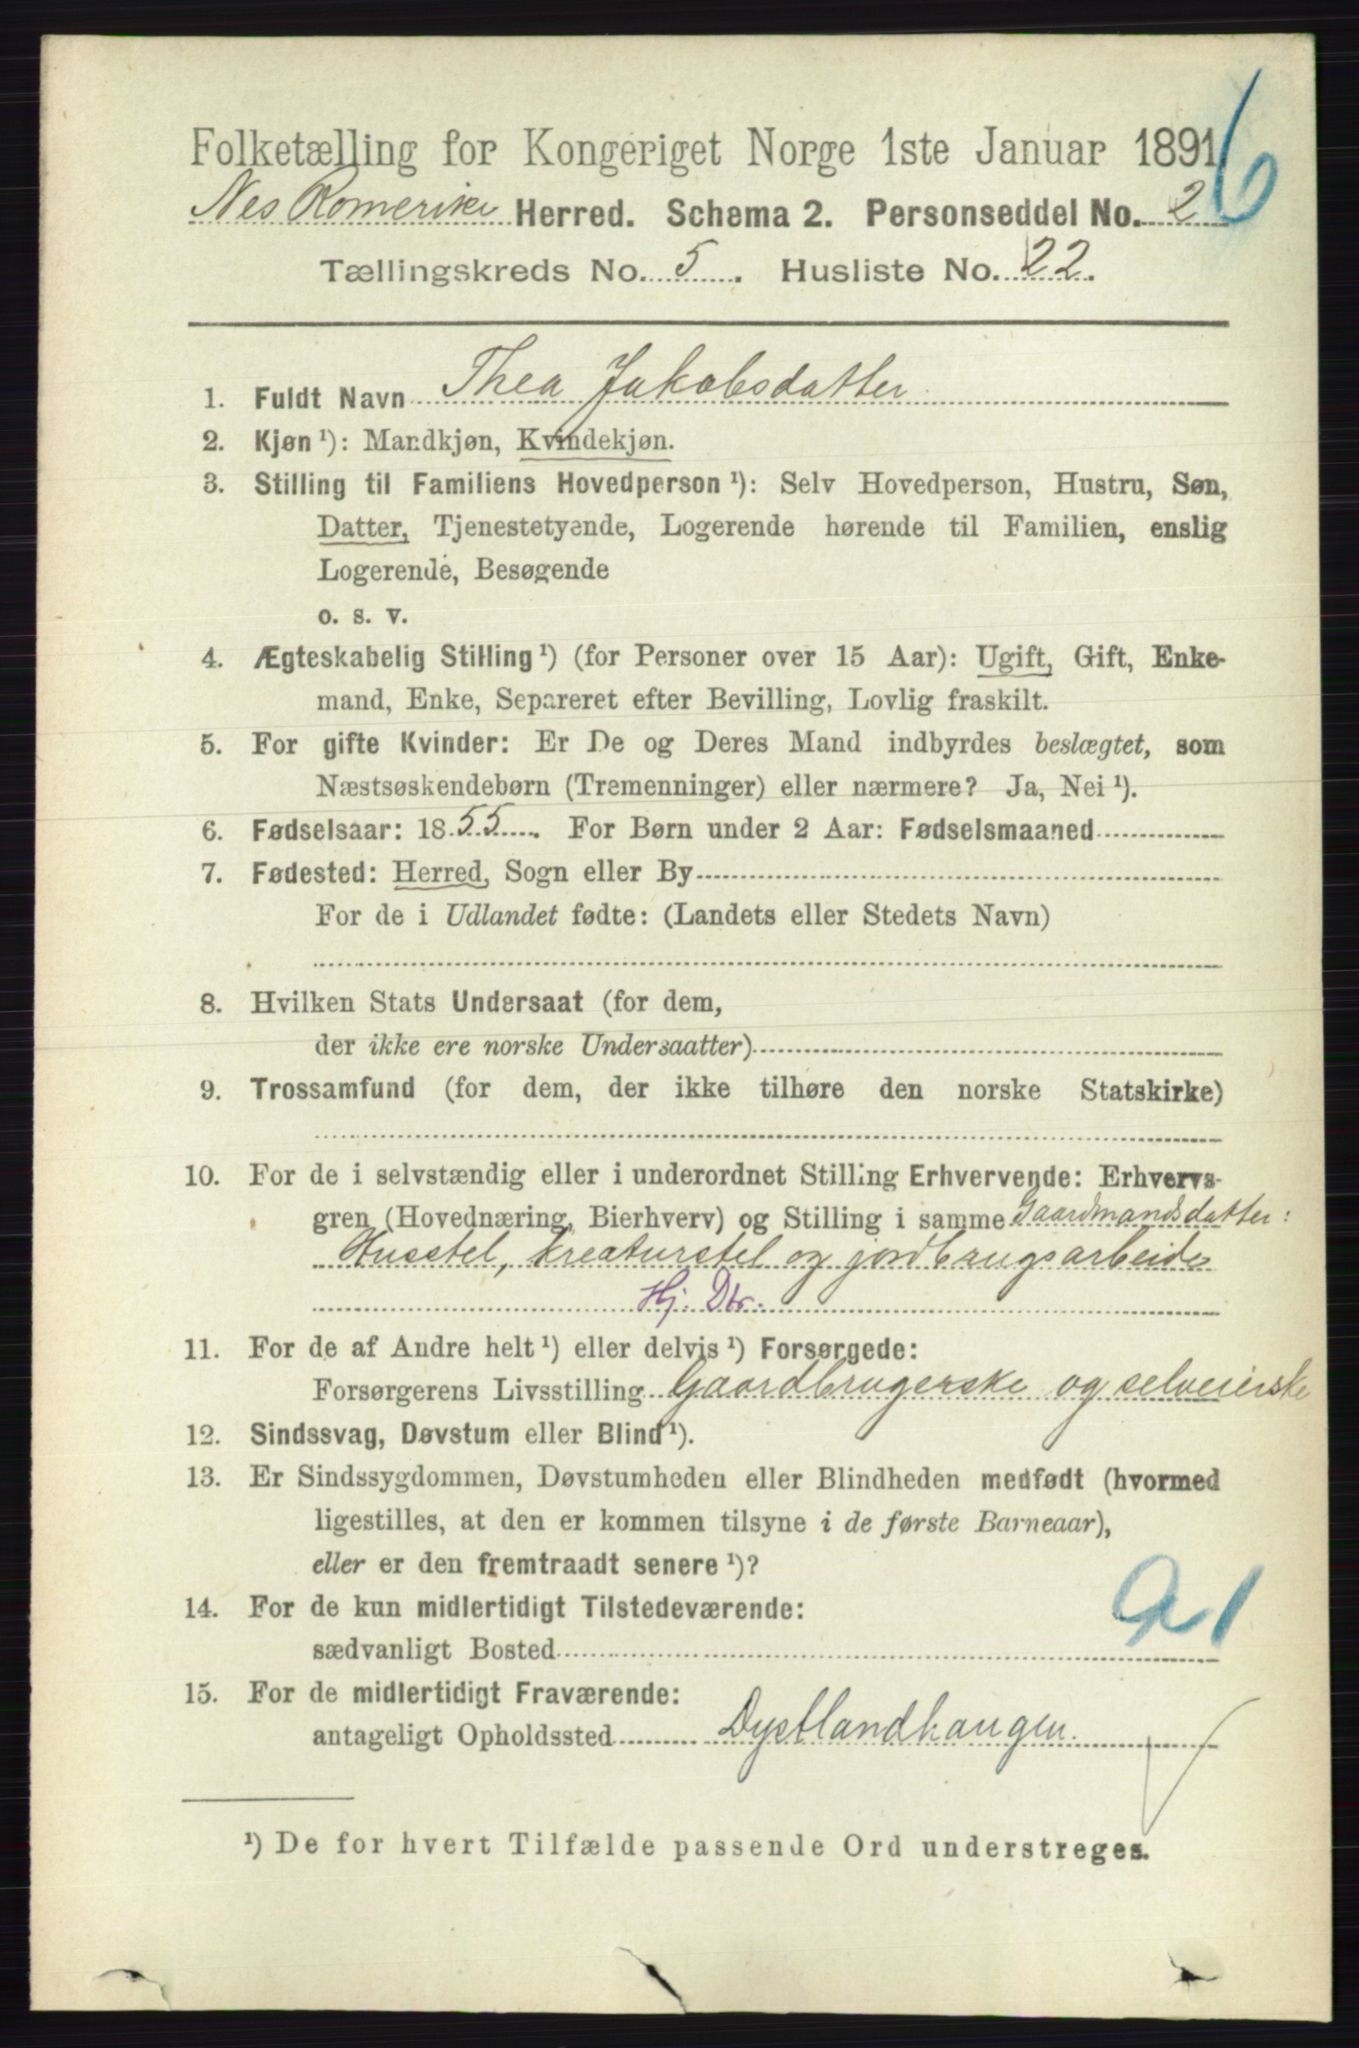 Folketælling for Kongeriget Norge 1ste Januar 1891
6
Nes Romerike Herred. Schema 2. Personseddel No. 2
Tællingskreds No. 5. Husliste No. 22.
1. Fuldt Navn Thea Jakobsdatter
2. Kjøn ¹): Mandkjøn, Kvindekjøn.
3. Stilling til Familiens Hovedperson ¹): Selv Hovedperson, Hustru, Søn,
Datter, Tjenestetyende, Logerende hørende til Familien, enslig
Logerende, Besøgende
o. s. v.
4. Ægteskabelig Stilling ¹) (for Personer over 15 Aar): Ugift, Gift, Enke-
mand, Enke, Separeret efter Bevilling, Lovlig fraskilt.
5. For gifte Kvinder: Er De og Deres Mand indbyrdes beslægtet, som
Næstsøskendebørn (Tremenninger) eller nærmere? Ja, Nei ¹).
6. Fødselsaar: 1855. For Børn under 2 Aar: Fødselsmaaned
7. Fødested: Herred, Sogn eller By
For de i Udlandet fødte: (Landets eller Stedets Navn)
8. Hvilken Stats Undersaat (for dem,
der ikke ere norske Undersaatter)
9. Trossamfund (for dem, der ikke tilhøre den norske Statskirke)
10. For de i selvstændig eller i underordnet Stilling Erhvervende: Erhvervs-
gren (Hovednæring, Bierhverv) og Stilling i samme Gaardmandsdatter:
Husstel, kreaturstel og jordbrugsarbeide
Hj. Dtr.
11. For de af Andre helt ¹) eller delvis ¹) Forsørgede:
Forsørgerens Livsstilling Gaardbrugerske og selveierske
12. Sindssvag, Døvstum eller Blind ¹).
13. Er Sindssygdommen, Døvstumheden eller Blindheden medfødt (hvormed
ligestilles, at den er kommen tilsyne i de første Barneaar),
eller er den fremtraadt senere ¹)?
14. For de kun midlertidigt Tilstedeværende:
sædvanligt Bosted
15. For de midlertidigt Fraværende:
antageligt Opholdssted Dystlandhaugen.
¹) De for hvert Tilfælde passende Ord understreges.